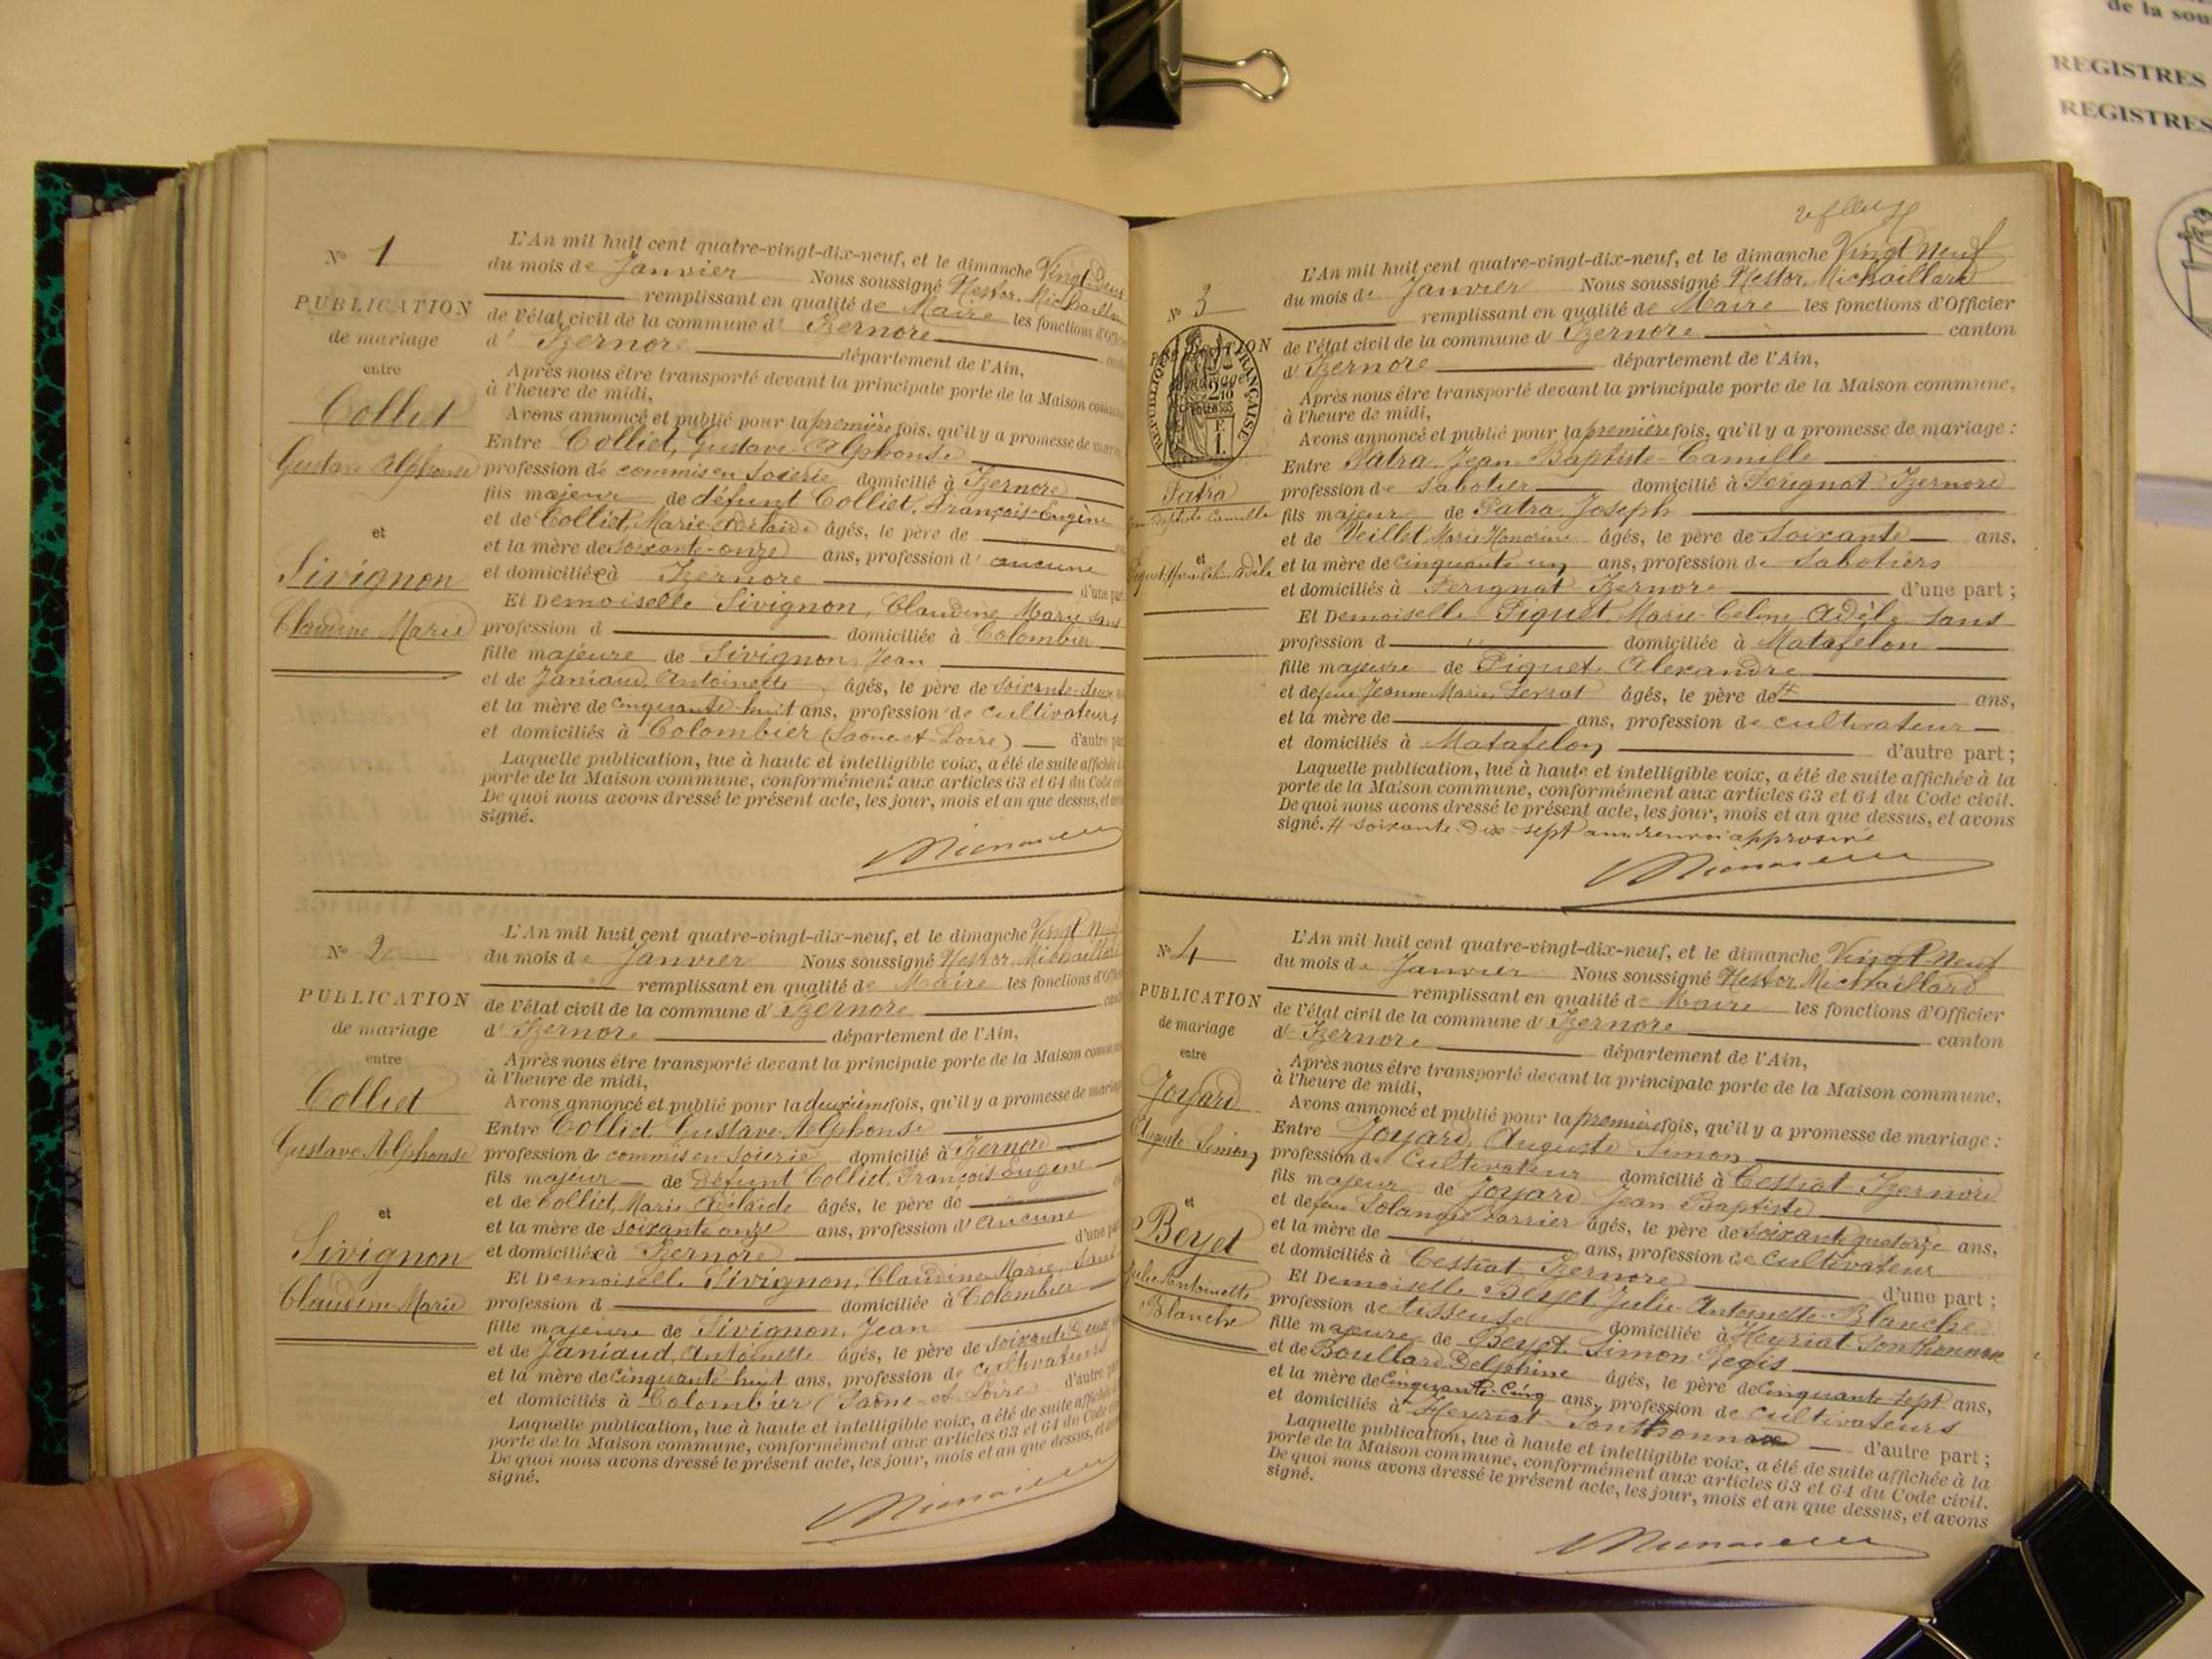 de la sou
REGISTRES
REGISTRES
N° 1
PUBLICATION
de mariage
entre
Colliet
Gustave Alphonse
et
Sivignon
Claudine Marie
L'An mil huit cent quatre-vingt-dix-neuf, et le dimanche Vingt-Deux
du mois de Janvier Nous soussigné Nestor, Michaillard
remplissant en qualité de Maire les fonctions d'Offi
de l'état civil de la commune d' Izernore
d' Izernore département de l'Ain,
Après nous être transporté devant la principale porte de la Maison commu
à l'heure de midi,
Avons annoncé et publié pour la première fois, qu'il y a promesse de mari
Entre Colliet, Gustave Alphonse
profession de commis en soierie domicilié à Izernore
fils majeur de défunt Colliet, François-Eugène
et de Colliet, Marie-Adélaïde âgés, le père de
et la mère de soixante-onze ans, profession d' aucune
et domiciliée à Izernore d'une par
Et Demoiselle Sivignon, Claudine Marie, sans
profession d domiciliée à Colombier
fille majeure de Sivignon, Jean
et de Janiaud, Antoinette âgés, le père de soixante-deux
et la mère de cinquante-huit ans, profession de cultivateurs
et domiciliés à Colombier (Saône-et-Loire) d'autre par
Laquelle publication, lue à haute et intelligible voix, a été de suite affichée à
porte de la Maison commune, conformément aux articles 63 et 64 du Code ci
De quoi nous avons dressé le présent acte, les jour, mois et an que dessus, et av
signé.
N° 2
PUBLICATION
de mariage
entre
Colliet
Gustave Alphonse
et
Sivignon
Claudine Marie
L'An mil huit cent quatre-vingt-dix-neuf, et le dimanche Vingt Neuf
du mois de Janvier Nous soussigné Nestor, Michaillard
remplissant en qualité de Maire les fonctions d'Offic
de l'état civil de la commune d' Izernore can
d' Izernore département de l'Ain,
Après nous être transporté devant la principale porte de la Maison commu
à l'heure de midi,
Avons annoncé et publié pour la deuxième fois, qu'il y a promesse de mariag
Entre Colliet, Gustave Alphonse
profession de commis en soierie domicilié à Izernore
fils majeur de Défunt Colliet, François Eugène
et de Colliet, Marie Adélaïde âgés, le père de
et la mère de soixante onze ans, profession d' aucune
et domiciliée à Izernore d'une par
Et Demoiselle Sivignon, Claudine Marie, sans
profession d domiciliée à Colombier
fille majeure de Sivignon, Jean
et de Janiaud, Antoinette âgés, le père de soixante Deux
et la mère de cinquante huit ans, profession de cultivateurs
et domiciliés à Colombier (Saône-et-Loire d'autre par
Laquelle publication, lue à haute et intelligible voix, a été de suite affichée
porte de la Maison commune, conformément aux articles 63 et 64 du Code
De quoi nous avons dressé le présent acte, les jour, mois et an que dessus, et
signé.
N° 3
RÉPUBLIQUE FRANÇAISE
Patra
Jean Baptiste Camille
et
Piguet Marie Celine Adèle
L'An mil huit cent quatre-vingt-dix-neuf, et le dimanche Vingt Neuf
du mois de Janvier Nous soussigné Nestor, Michaillard
remplissant en qualité de Maire les fonctions d'Officier
de l'état civil de la commune d' Izernore canton
d' Izernore département de l'Ain,
Après nous être transporté devant la principale porte de la Maison commune,
à l'heure de midi,
Avons annoncé et publié pour la première fois, qu'il y a promesse de mariage :
Entre Patra, Jean-Baptiste-Camille
profession de sabotier domicilié à Perignat Izernore
fils majeur de Patra Joseph
et de Veillet, Marie Honorine âgés, le père de soixante ans,
et la mère de cinquante un ans, profession de sabotiers
et domiciliés à Perignat Izernore d'une part ;
Et Demoiselle Piguet, Marie-Celine-Adèle, sans
profession d domiciliée à Matafelon
fille majeure de Piguet Alexandre
et de feue Jeanne Marie Serrat âgés, le père de # ans,
et la mère de ans, profession de cultivateur
et domiciliés à Matafelon d'autre part ;
Laquelle publication, lue à haute et intelligible voix, a été de suite affichée à la
porte de la Maison commune, conformément aux articles 63 et 64 du Code civil.
De quoi nous avons dressé le présent acte, les jour, mois et an que dessus, et avons
signé. # soixante-dix-sept ans, renvoi approuvé
N° 4
PUBLICATION
de mariage
entre
Joyard
Auguste Simon
et
Beyet
Julie Antoinette
Blanche
L'An mil huit cent quatre-vingt-dix-neuf, et le dimanche Vingt-Neuf
du mois de Janvier Nous soussigné Nestor Michaillard
remplissant en qualité de Maire les fonctions d'Officier
de l'état civil de la commune d' Izernore canton
d' Izernore département de l'Ain,
Après nous être transporté devant la principale porte de la Maison commune,
à l'heure de midi,
Avons annoncé et publié pour la première fois, qu'il y a promesse de mariage :
Entre Joyard, Auguste Simon
profession de Cultivateur domicilié à Cessiat Izernore
fils majeur de Joyard Jean-Baptiste
et de feue Solange Carrier âgés, le père de soixante quatorze ans,
et la mère de ans, profession de cultivateur
et domiciliés à Cessiat Izernore d'une part ;
Et Demoiselle Beyet, Julie-Antoinette-Blanche
profession de tisseuse domiciliée à Heyriat Sonthonnax
fille majeure de Beyet Simon Regis
et de Boullard Delphine âgés, le père de Cinquante sept ans,
et la mère de Cinquante-Cinq ans, profession de cultivateurs
et domiciliés à Heyriat Sonthonnax d'autre part ;
Laquelle publication, lue à haute et intelligible voix, a été de suite affichée à la
porte de la Maison commune, conformément aux articles 63 et 64 du Code civil.
De quoi nous avons dressé le présent acte, les jour, mois et an que dessus, et avons
signé.